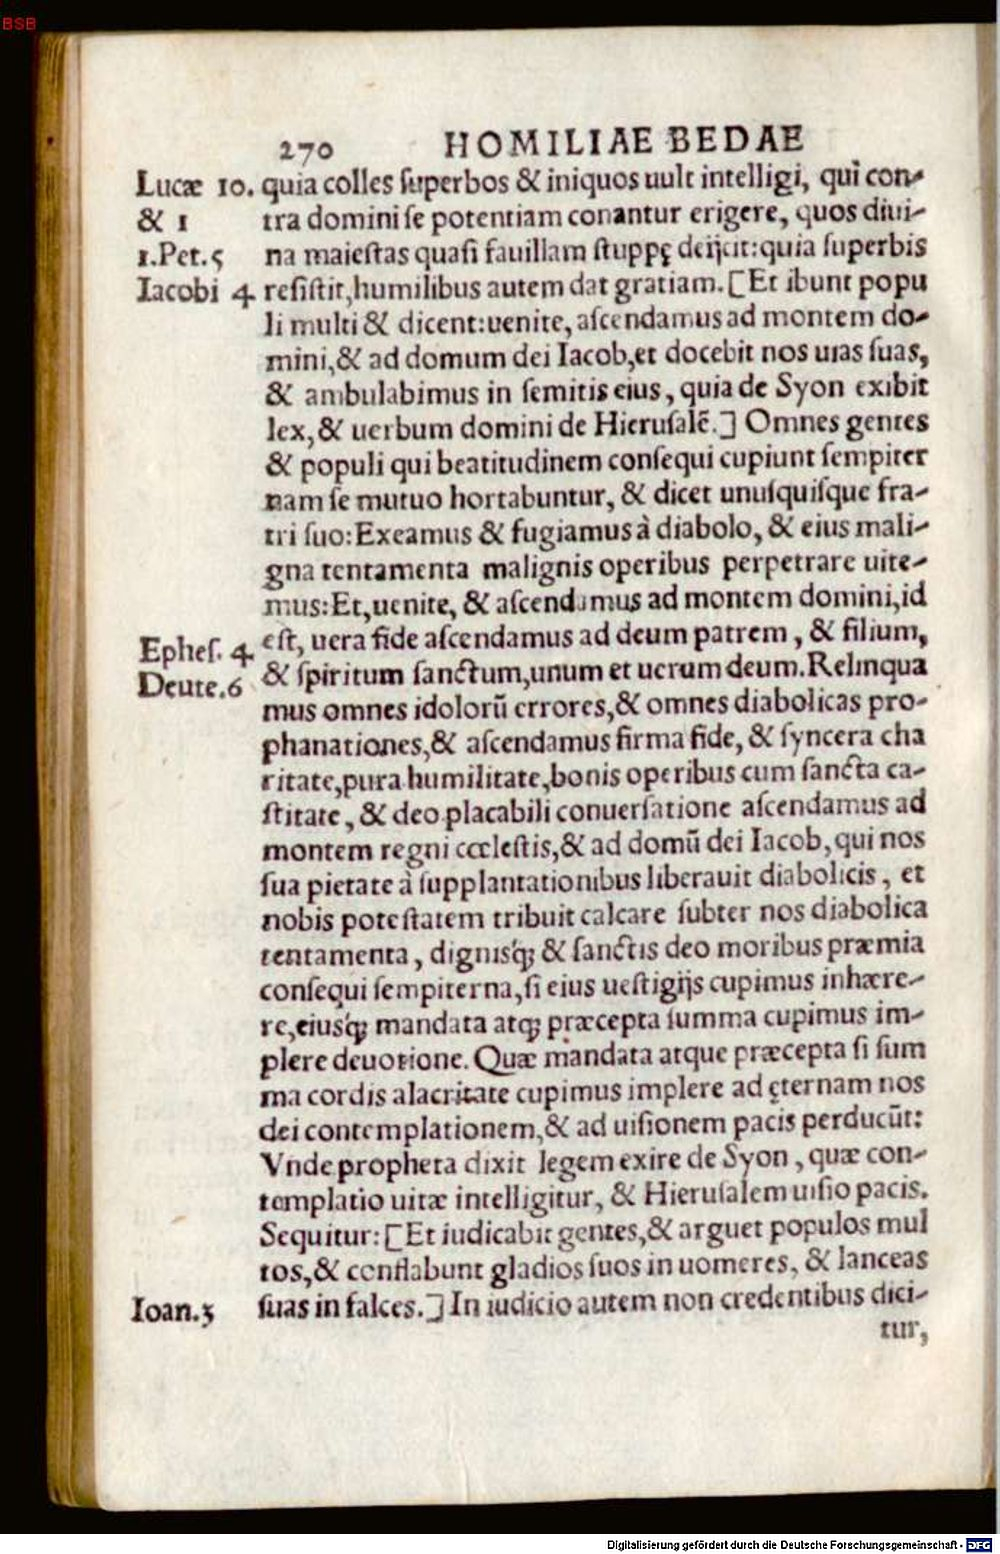 BSB
270 HOMILIAE BEDAE
Lucæ 10. quia colles superbos & iniquos uult intelligi, qui con-
& 1 tra domini se potentiam conantur erigere, quos diui-
1.Pet.5 na maiestas quasi fauillam stuppę deijcit:quia superbis
Iacobi 4 resistit,humilibus autem dat gratiam.[Et ibunt popu
li multi & dicent:uenite, ascendamus ad montem do-
mini,& ad domum dei Iacob,et docebit nos uias suas,
& ambulabimus in semitis eius, quia de Syon exibit
lex,& uerbum domini de Hierusalẽ.] Omnes gentes
& populi qui beatitudinem consequi cupiunt sempiter
nam se mutuo hortabuntur, & dicet unusquisque fra-
tri suo:Exeamus & fugiamus à diabolo, & eius mali-
gna tentamenta malignis operibus perpetrare uite-
mus:Et,uenite, & ascendamus ad montem domini,id
Ephes. 4 est, uera fide ascendamus ad deum patrem, & filium,
Deute.6 & spiritum sanctum,unum et uerum deum.Relinqua
mus omnes idolorũ errores,& omnes diabolicas pro-
phanationes,& ascendamus firma fide, & syncera cha
ritate,pura humilitate,bonis operibus cum sancta ca-
stitate, & deo placabili conuersatione ascendamus ad
montem regni cœlestis,& ad domũ dei Iacob, qui nos
sua pietate à supplantationibus liberauit diabolicis, et
nobis potestatem tribuit calcare subter nos diabolica
tentamenta, dignisq́; & sanctis deo moribus præmia
consequi sempiterna,si eius uestigijs cupimus inhære-
re,eiusq́; mandata atq; præcepta summa cupimus im-
plere deuotione. Quæ mandata atque præcepta si sum
ma cordis alacritate cupimus implere ad ęternam nos
dei contemplationem,& ad uisionem pacis perducũt:
Vnde propheta dixit legem exire de Syon, quæ con-
templatio uitæ intelligitur, & Hierusalem uisio pacis.
Sequitur:[Et iudicabit gentes,& arguet populos mul
tos,& conflabunt gladios suos in uomeres, & lanceas
Ioan.3 suas in falces.] In iudicio autem non credentibus dici-
tur,
Digitalisierung gefördert durch die Deutsche Forschungsgemeinschaft - DFG